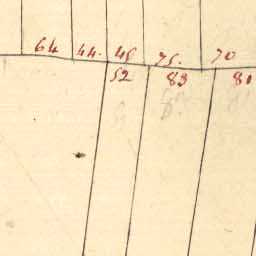 64 44. 45 75. 70
52 83 80